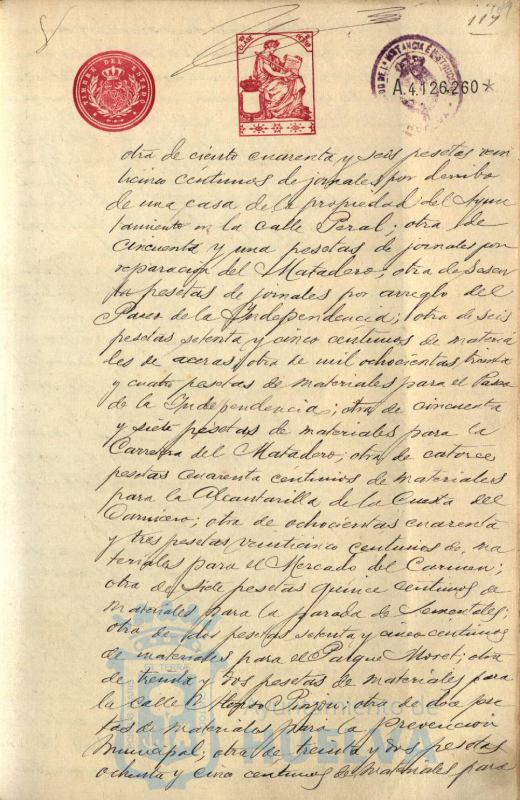 119
TIMBRE DEL ESTADO
CLASE
A.4.126.260*
otra de ciento cuarenta y seis pesetas vein
ticinco céntimos de jornales por derribo
de una casa de la propiedad del Ayun
tamiento en la calle Peral; otra de
cincuenta y una pesetas de jornales por
reparación del Matadero; otra de sesen
ta pesetas de jornales por arreglo del
Paseo de la Independencia; otra de seis
pesetas setenta y cinco céntimos de materia
les de aceras; otra de mil ochocientas treinta
y cuatro pesetas de materiales para el Paseo
de la Independencia; otra de cincuenta
y siete pesetas de materiales para la
Carretera del Matadero; otra de catorce
pesetas cuarenta céntimos de materiales
para la Alcantarilla de la Cuesta del
Carnicero; otra de ochocientas cuarenta
y tres pesetas veinticinco centimos de ma
teriales para el Mercado del Carmen;
otra de siete pesetas quince centimos de
materiales para la parada de Sementales;
otra de dos pesetas setenta y cinco centimos
de materiales para el Parque Moret; otra
de treinta y dos pesetas de materiales para
la calle Alonso Pinzón; otra de doce pese
tas de materiales para la Prevención
Municipal; otra de treinta y dos pesetas
ochenta y cinco centimos de materiales para
Ayuntamiento de
HUELVA